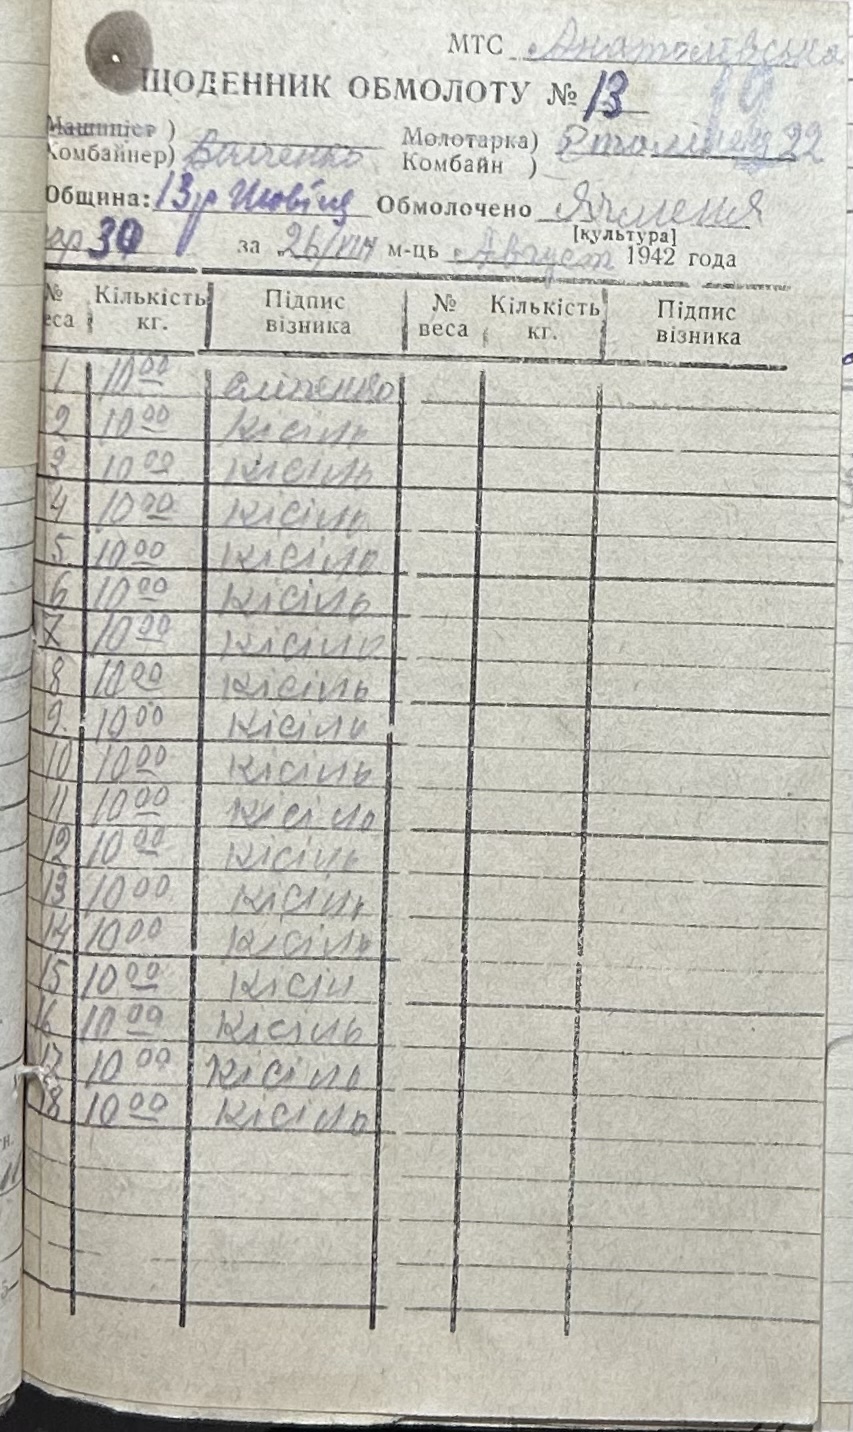 МТС Анатолівська
ЩОДЕННИК ОБМОЛОТУ № 13
Машиніст )
Комбайнер)
Молотарка)
Комбайн )
Община: 13 р Обмолочено Ячменя
[культура]
за 26/VIII м-ць Август 1942 года
№ веса Кількість кг. Підпис візника № веса Кількість кг. Підпис візника
1 10 00
2 10 00 Кісіль
3 10 00 Кісіль
4 10 00 Кісіль
5 10 00 Кісіль
6 10 00 Кісіль
7 10 00 Кісіль
8 10 00 Кісіль
9 10 00 Кісіль
10 10 00 Кісіль
11 10 00 Кісіль
12 10 00 Кісіль
13 10 00 Кісіль
14 10 00 Кісіль
15 10 00 Кісіл
16 10 00 Кісіль
17 10 00 Кісіль
18 10 00 Кісіль